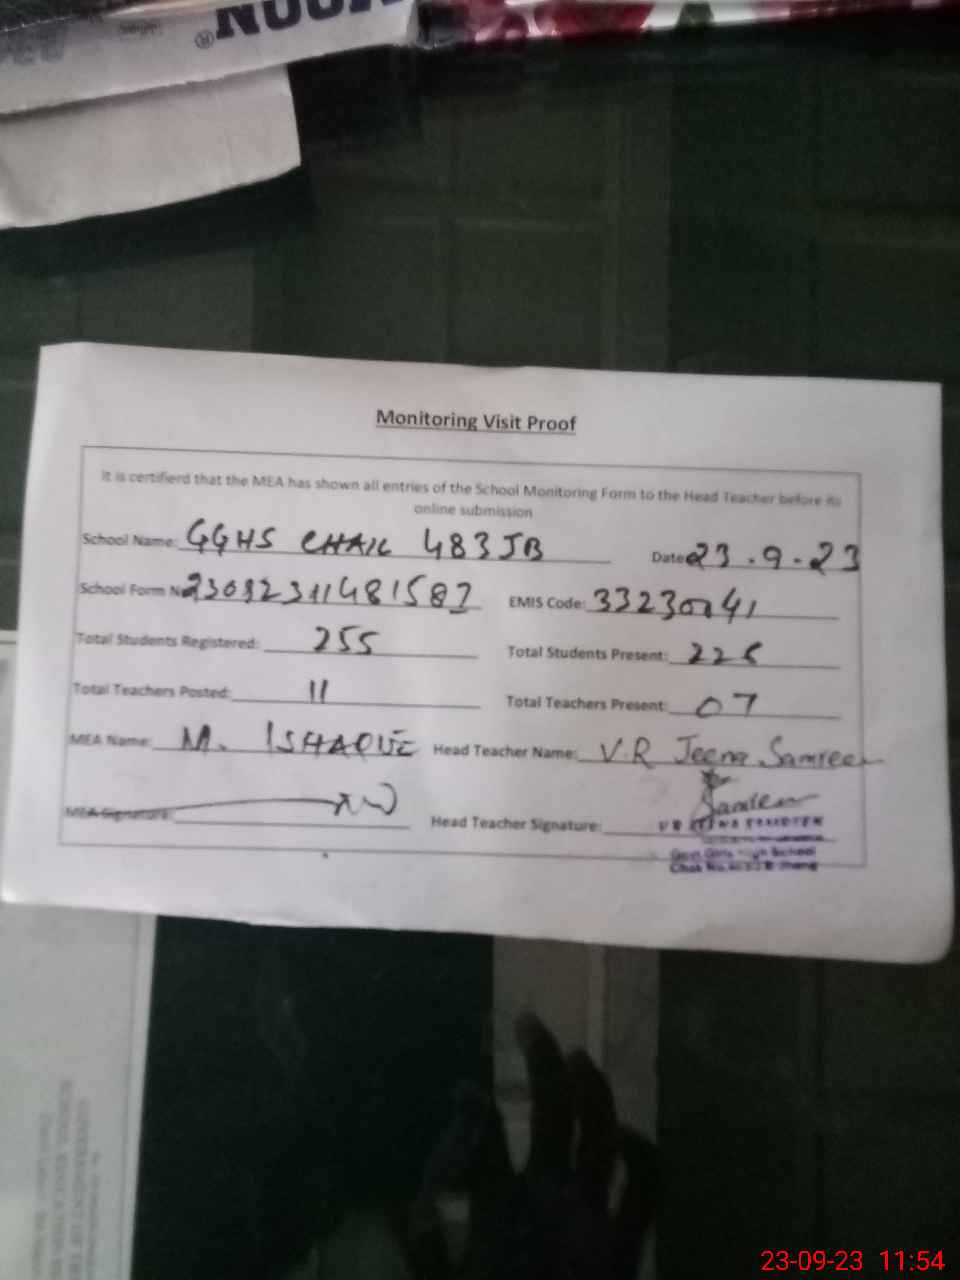 NOON®
Monitoring Visit Proof
It is certifierd that the MEA has shown all entries of the School Monitoring Form to the Head Teacher before its
online submission
School Name: GGHS CHAK 483 JB Date: 23.9.23
School Form N 23092311481587 EMIS Code: 33230241
Total Students Registered: 255 Total Students Present: 225
Total Teachers Posted: 11 Total Teachers Present: 07
MEA Name: M. ISHAQUE Head Teacher Name: V.R Jeena Samreen
MEA Signature: Head Teacher Signature: Samreen
Govt Girls High School
Chak No. 483 JB Jhang
23-09-23 11:54